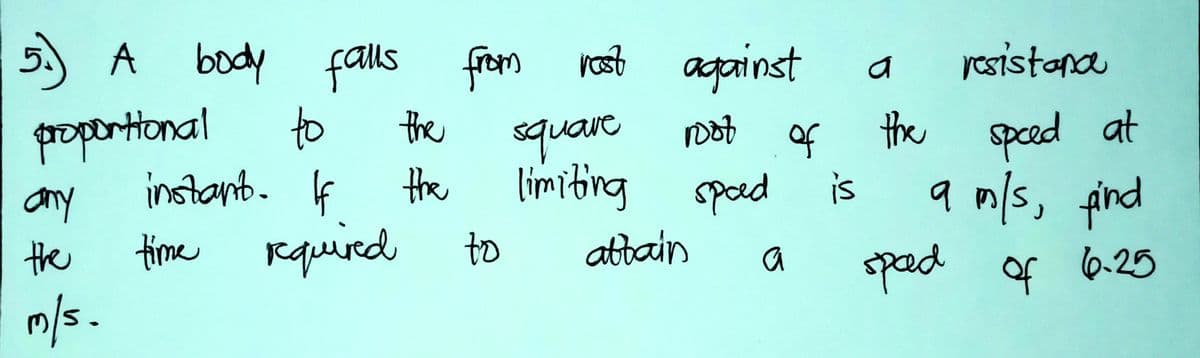 5.) A body falls from rest against a resistance
proportional to the square root of the speed at
any instant. If the limiting speed is 9 m/s, find
the time required to attain a speed of 6.25
m/s.